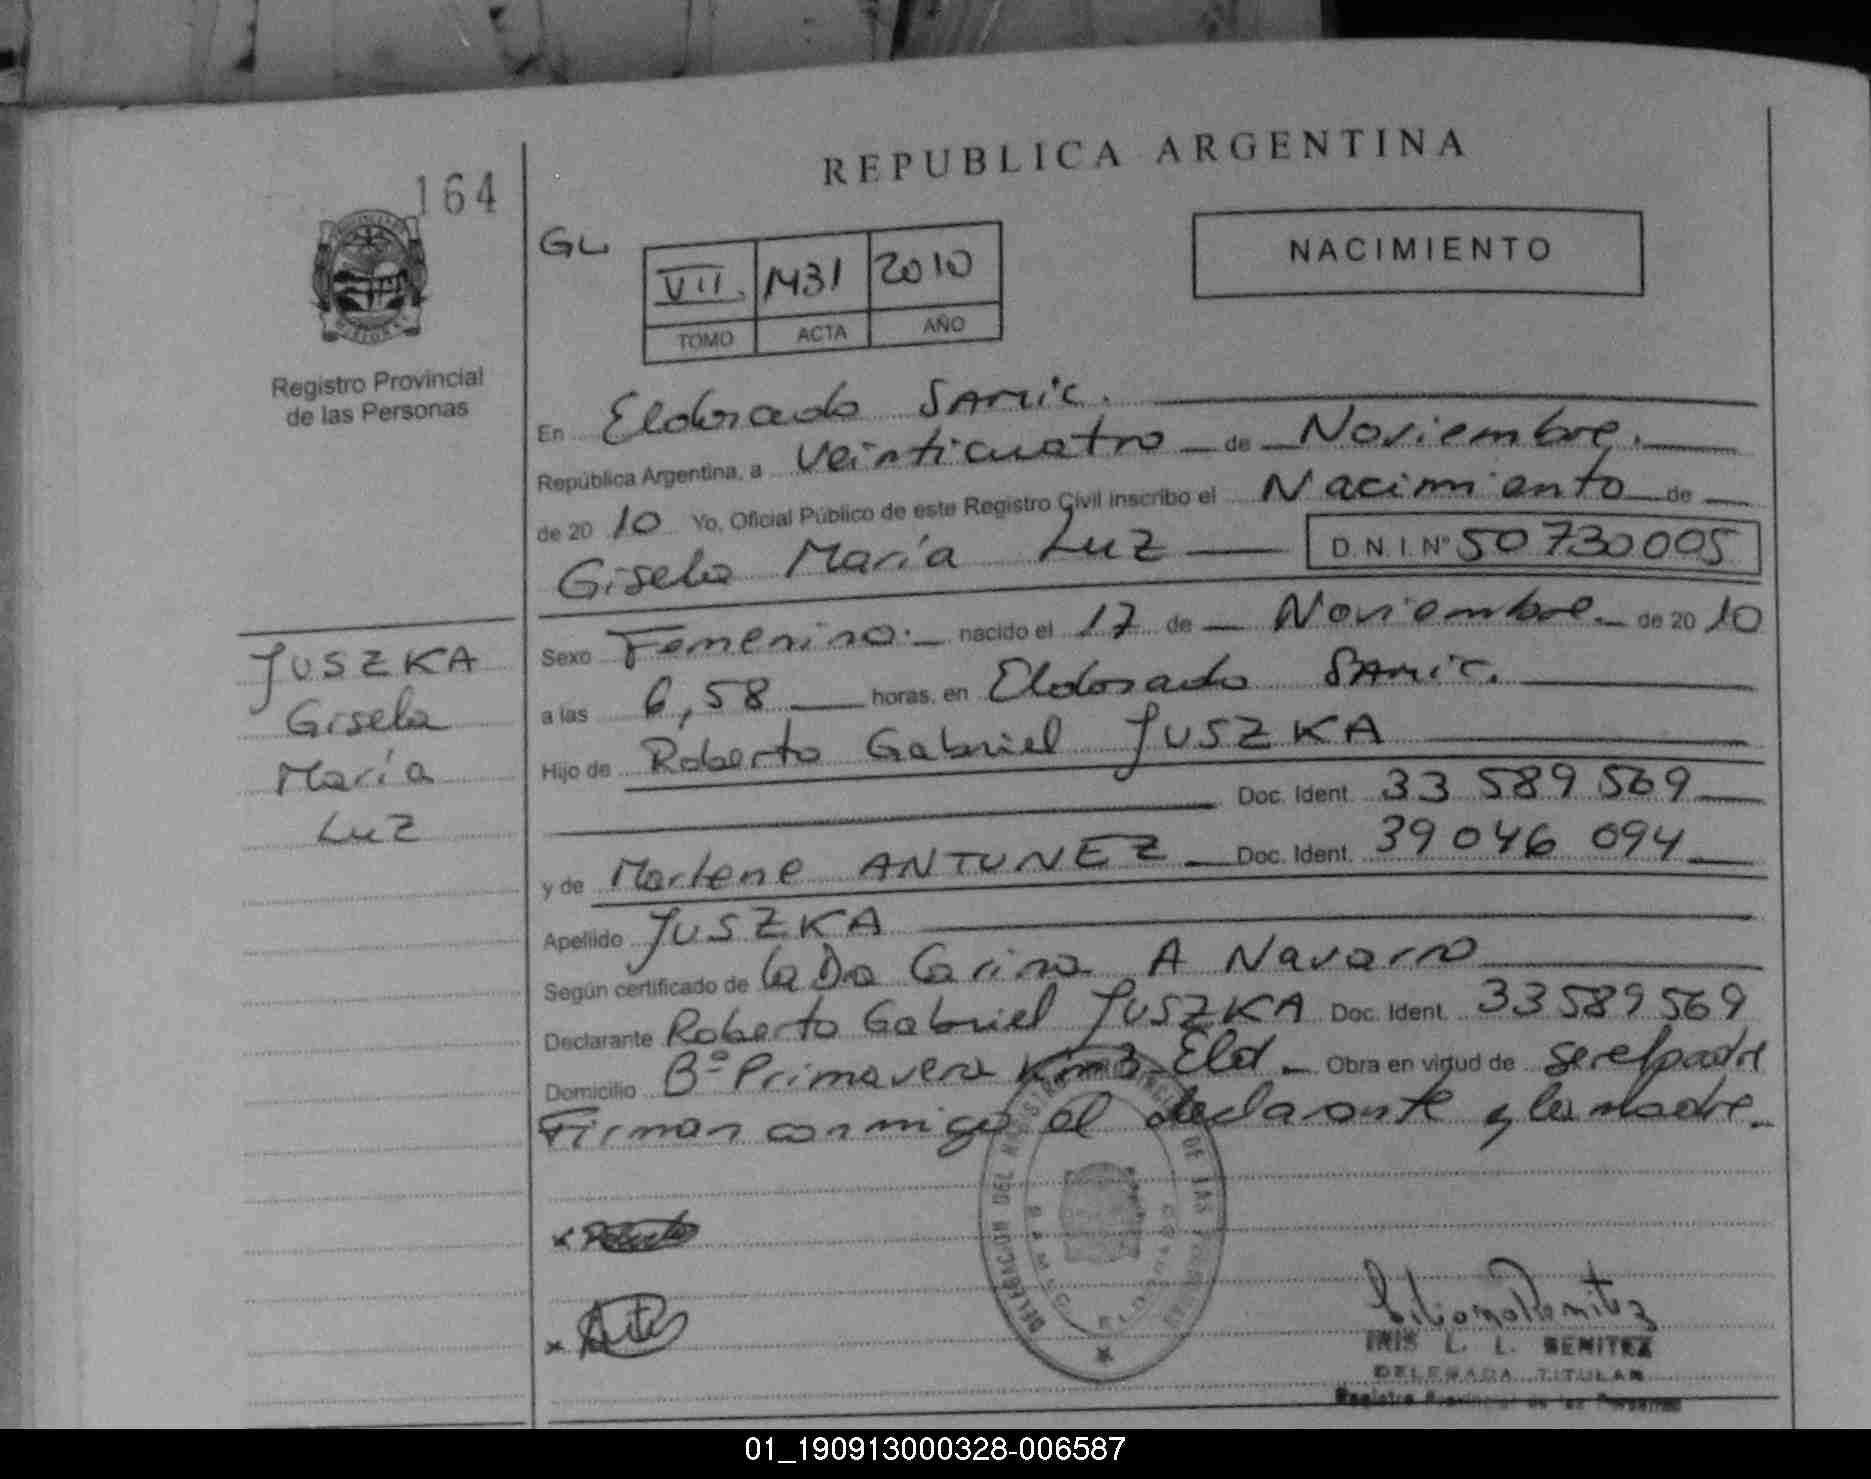 REPUBLICA ARGENTINA
164
GL
NACIMIENTO
VII. 1431 2010
TOMO ACTA AÑO
Registro Provincial
de las Personas
En Eldorado SAMIC.
República Argentina, a Veinticuatro de Noviembre.
de 20 10 Yo, Oficial Público de este Registro Civil inscribo el Nacimiento de
Gisela María Luz D.N.I. Nº 50730005
Sexo Femenino. nacido el 17 de Noviembre. de 20 10
a las 6,58 horas, en Eldorado SAMIC.
Hijo de Roberto Gabriel JUSZKA
Doc. Ident. 33 589 569
y de Marlene ANTUNEZ Doc. Ident. 39046 094
Apellido JUSZKA
Según certificado de la Dra Carina A Navarro
Declarante Roberto Gabriel JUSZKA Doc. Ident. 33589569
Domicilio Bº Primavera Km 3 Eld. Obra en virtud de ser el padre
Firman conmigo el declarante y la madre.
JUSZKA
Gisela
María
Luz
DELEGACION DEL REGISTRO PROVINCIAL DE LAS PERSONAS
IRIS L. L. BENITEZ
DELEGADA TITULAR
Registro Provincial de las Personas
01_190913000328-006587